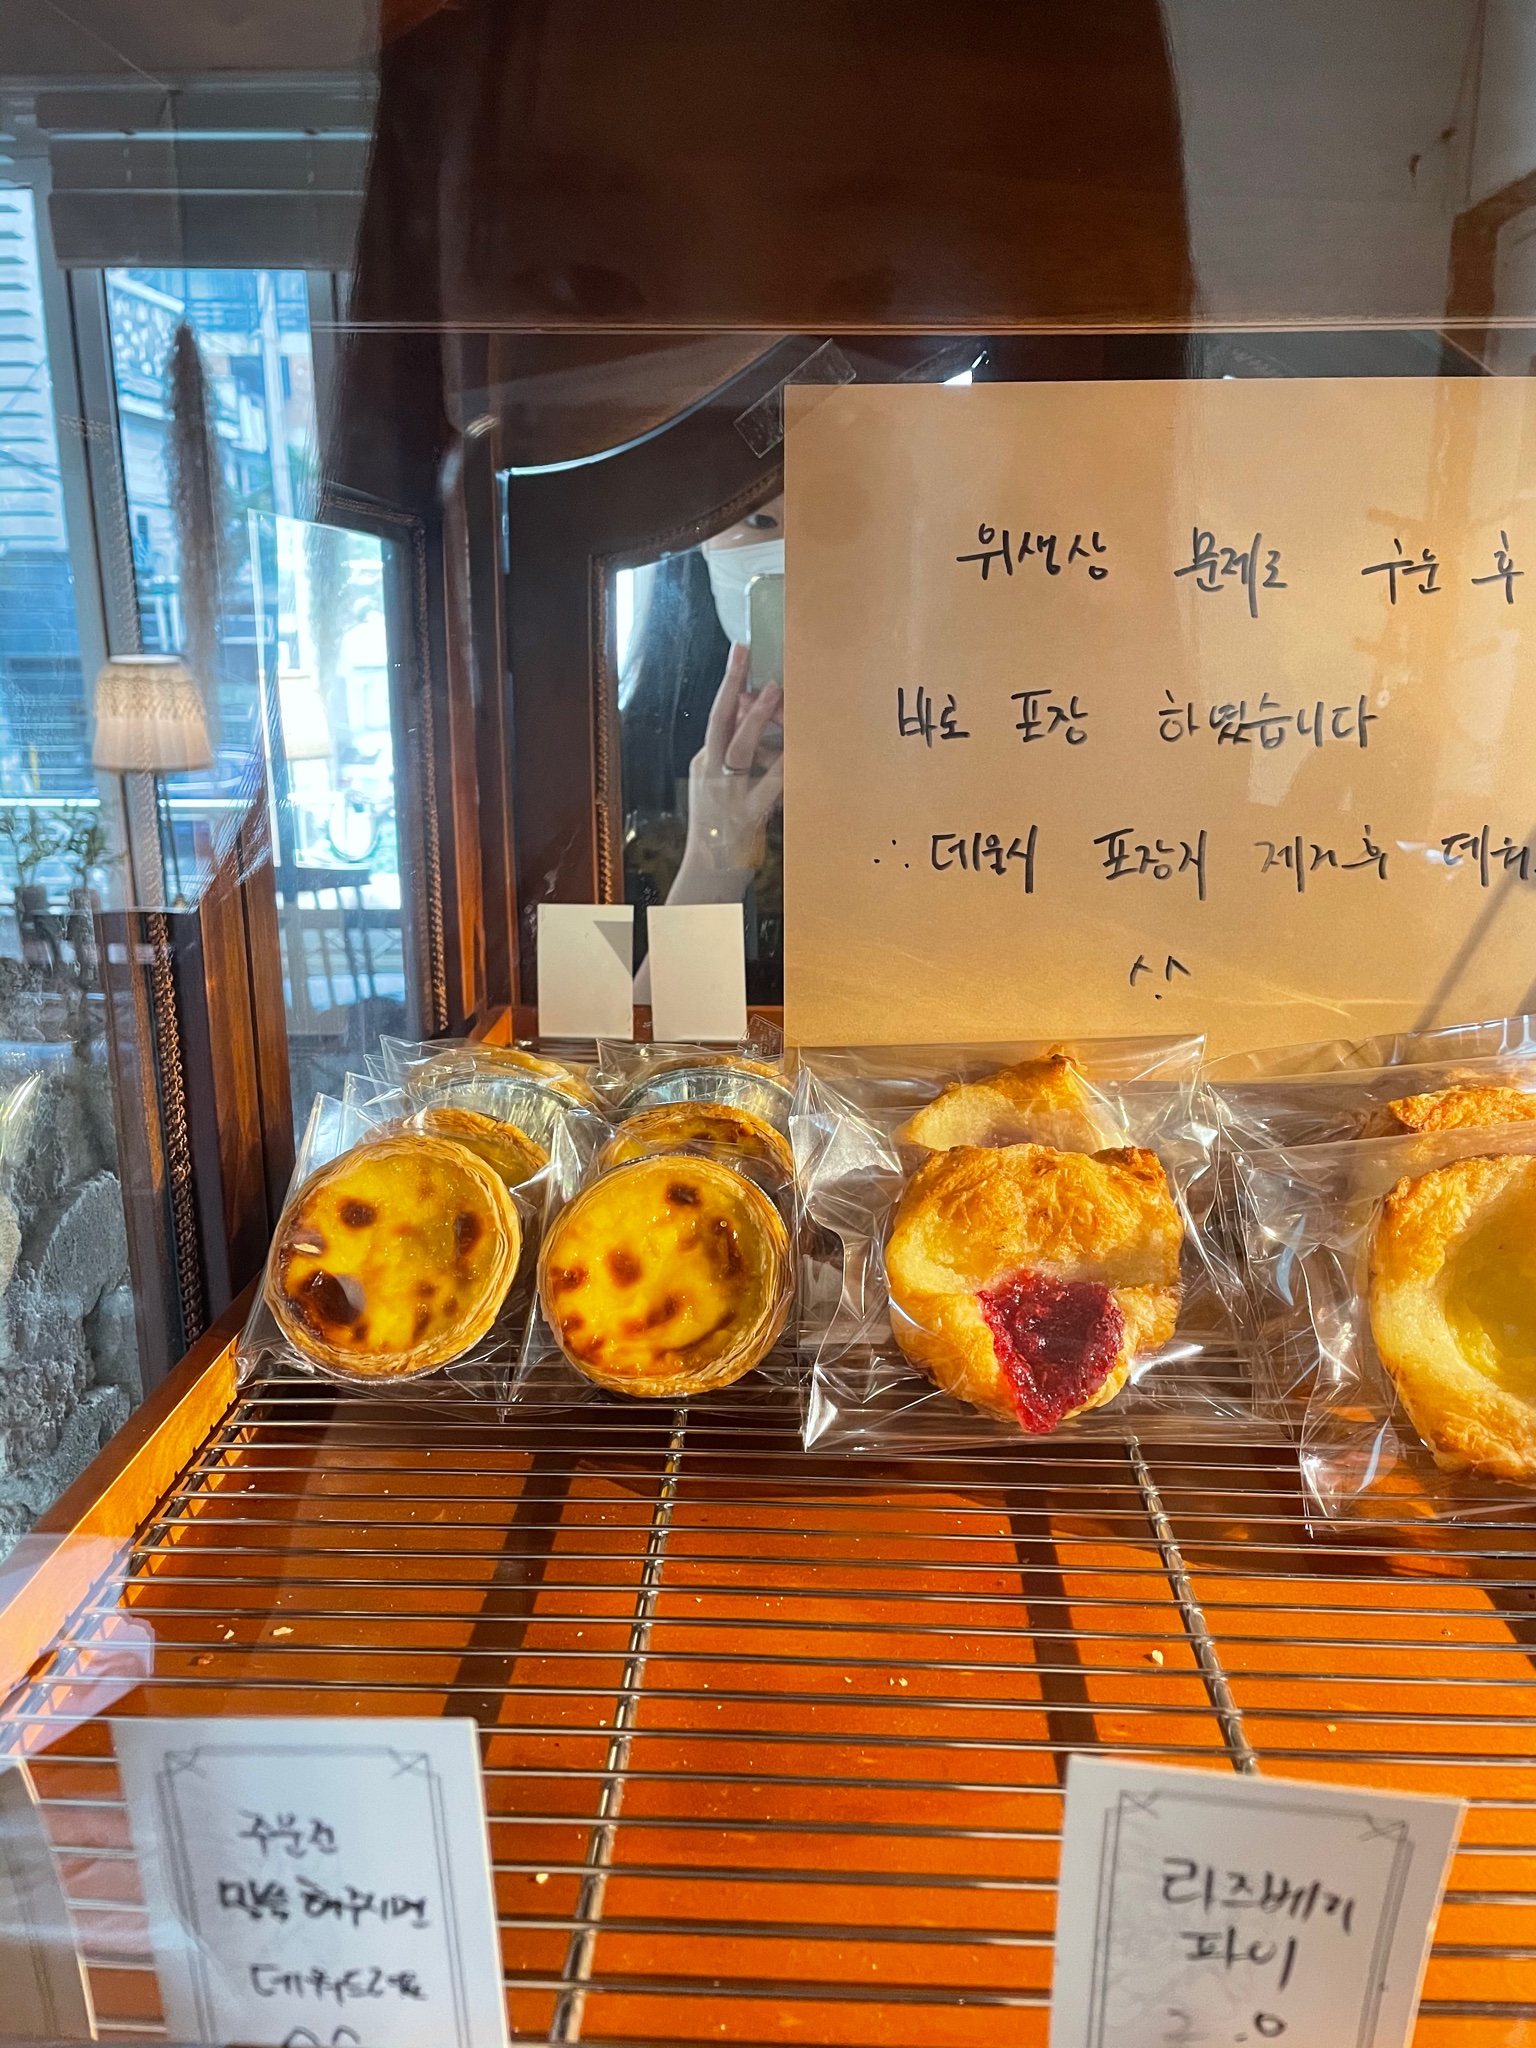 위생상 문제로 구운 후
바로 포장 하였습니다
∴ 데울시 포장지 제거후
^.^
주문전
말씀해주시면
데워드려요
^^
라즈베리
파이